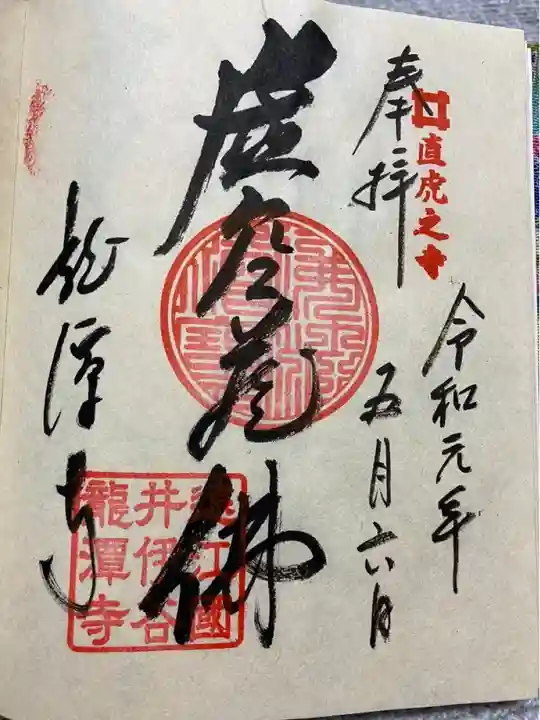 直虎之寺
奉拝
令和元年
五月六日
虚空蔵佛
龍潭寺
遠江國
井伊谷
龍潭寺